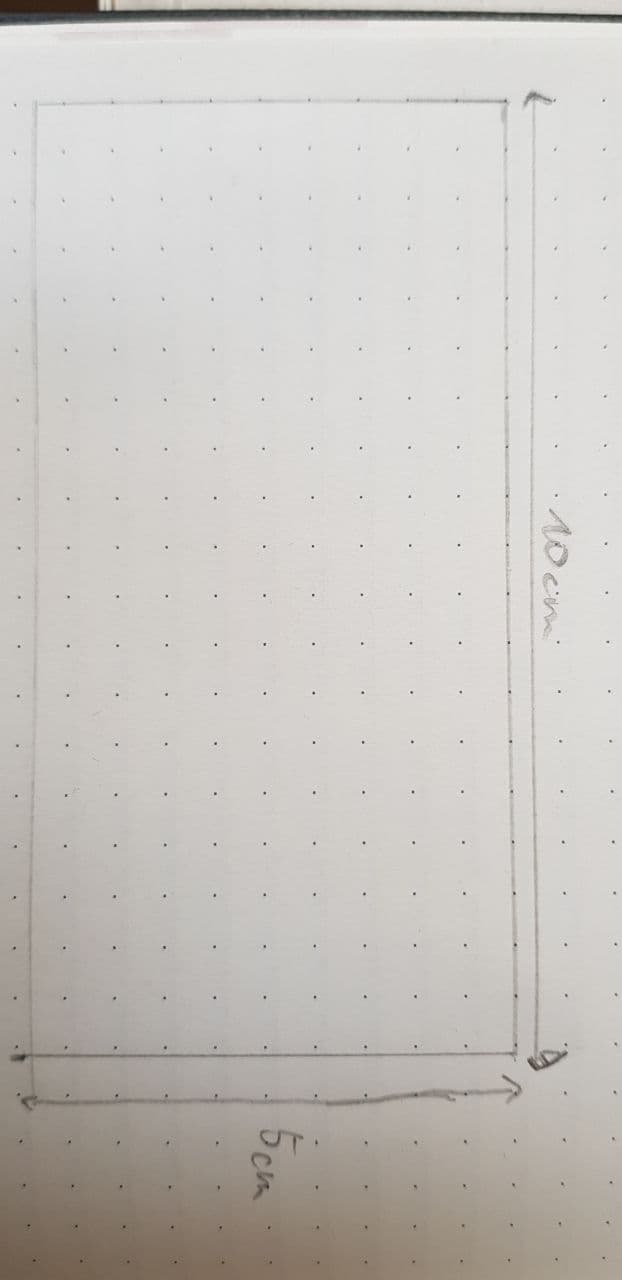 10cm
5cm